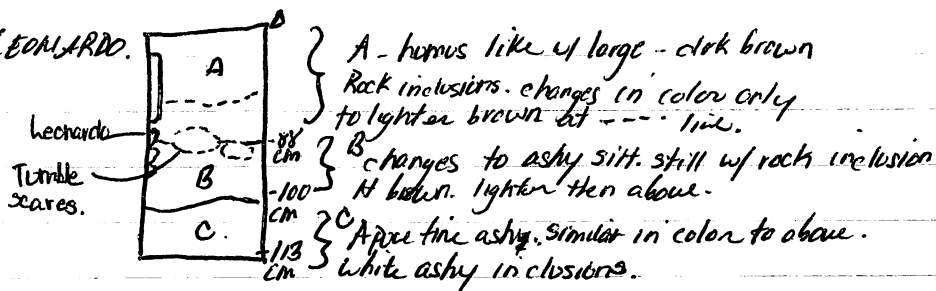 LEONARDO.
A
B
C.
0
Leonardo
Tumble
scares.
88
cm
-100
cm
-113
cm
A - humus like w/ large - drk brown
Rock inclusions. changes in color only
to lighter brown at ---- line.
B changes to ashy silt. still w/ rock inclusion
lt brown. lighter then above.
C A pure fine ashy. Similar in color to above.
White ashy inclusions.